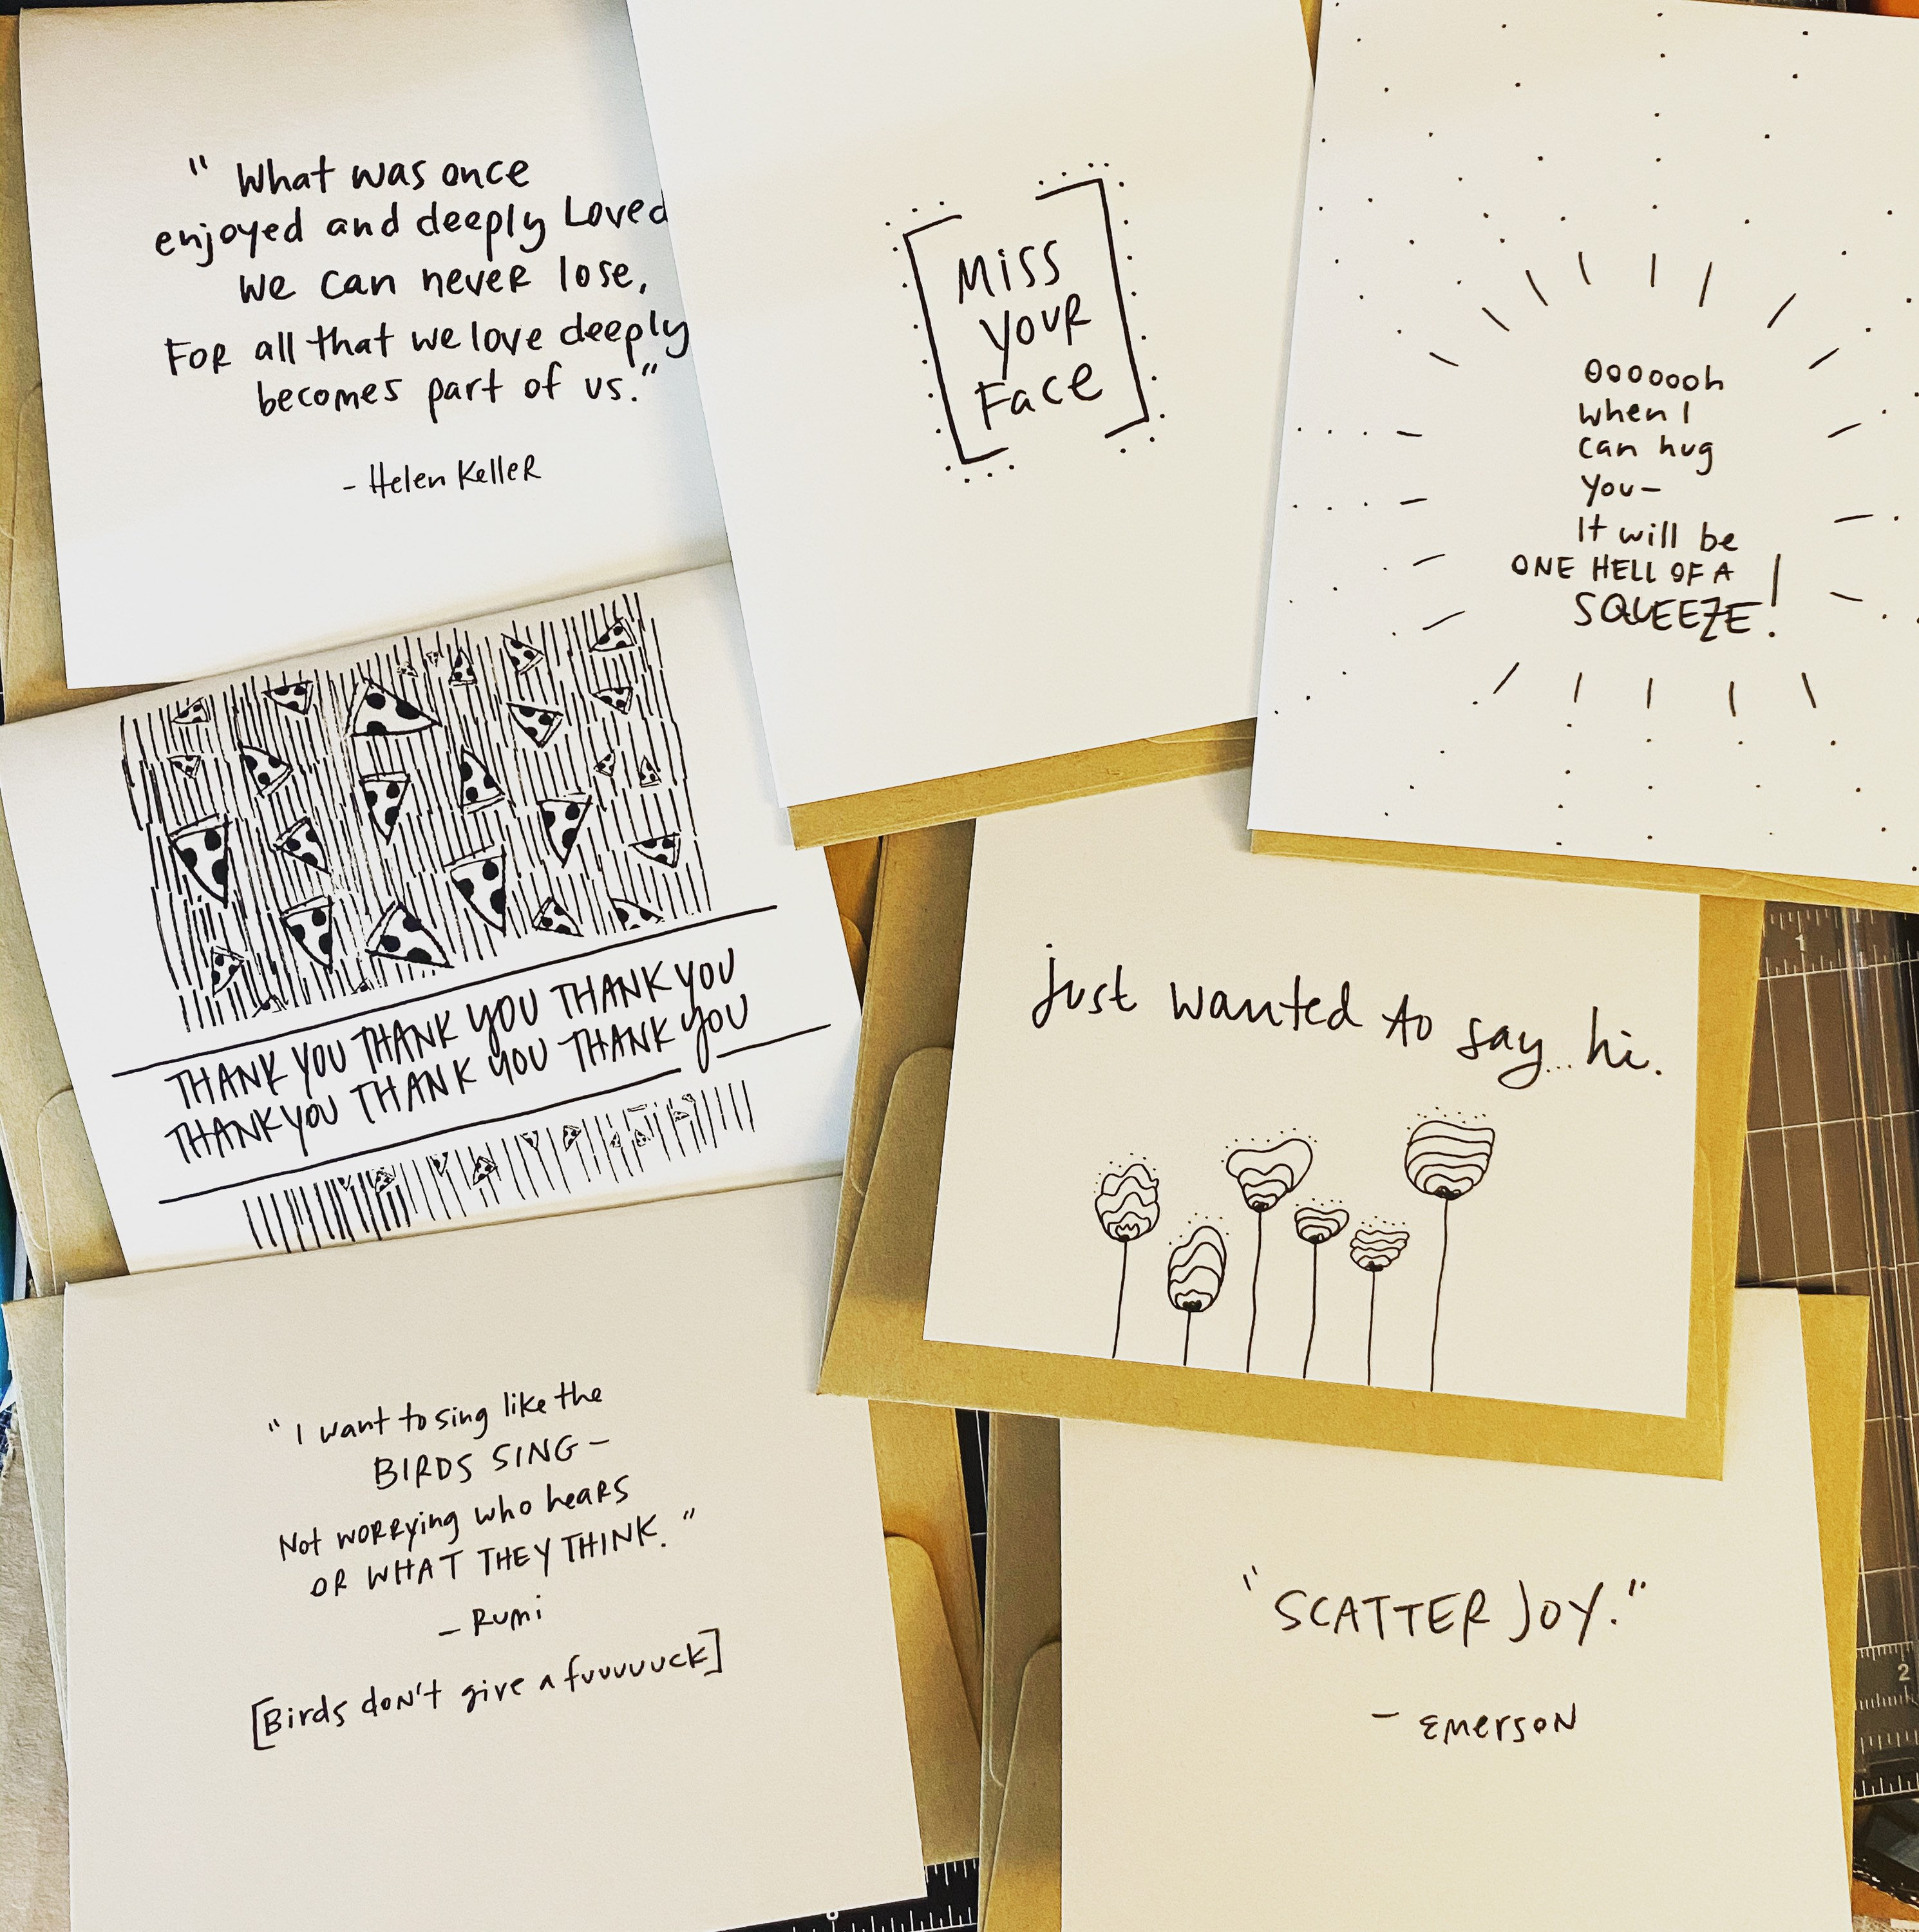 " What was once
enjoyed and deeply Loved
we can never lose,
For all that we love deeply
becomes part of us."
- Helen Keller
Miss
your
Face
Ooooooh
when I
can hug
you-
It will be
ONE HELL OF A
SQUEEZE!
THANK YOU THANK YOU THANK YOU
THANK YOU THANK YOU THANK YOU
just wanted to say... hi.
" I want to sing like the
BIRDS SING -
Not worrying who hears
OR WHAT THEY THINK. "
- Rumi
[Birds don't give a fuuuuuck]
"SCATTER JOY."
- Emerson
1
2